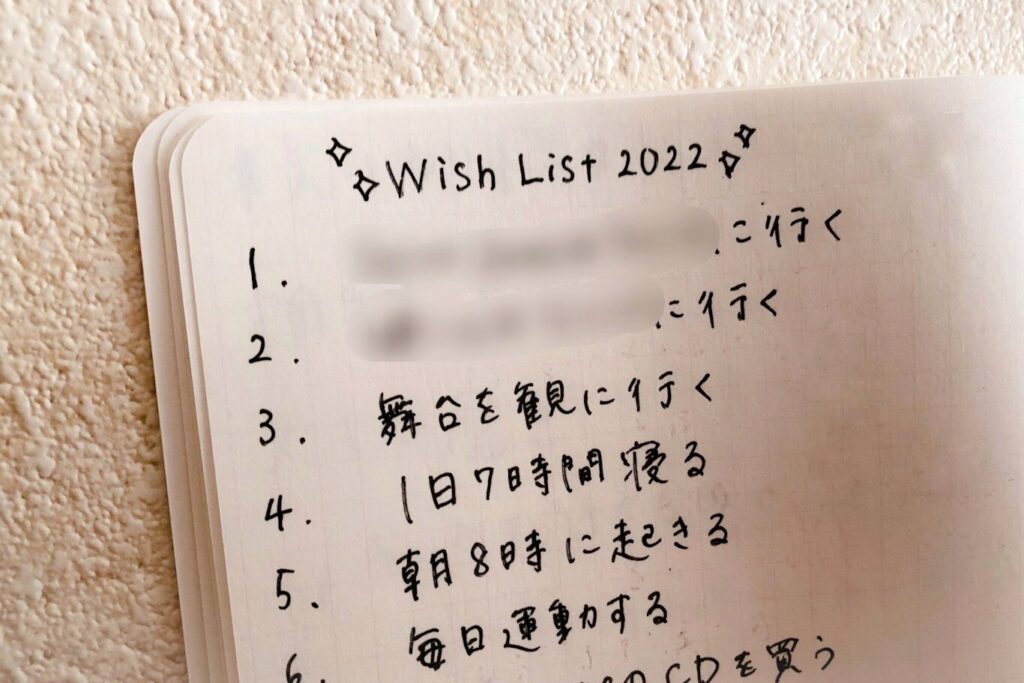 Wish List 2022
1. に行く
2. に行く
3. 舞台を観に行く
4. 1日7時間寝る
5. 朝8時に起きる
6. 毎日運動する
のCDを買う